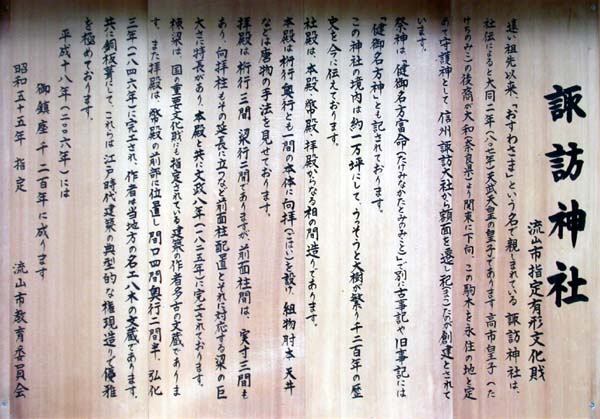 諏訪神社
流山市指定有形文化財
遠い祖先以来、「おすわさま」という名で親しまれている諏訪神社は、
社伝によると大同二年(八〇七年)天武天皇の皇子であります高市皇子(た
けちのみこ)の後裔が大和(奈良県)より関東に下向、この駒木を永住の地と定
めて守護神として、信州諏訪大社から額面を遷し祀まつたが創建とされて
います。
祭神は「健御名方富命(たけみなかたとみのみこと)」で別に古事記や旧事記には
「健御名方神」とも記されております。
この神社の境内は約一万坪にして、うっそうと大樹が繁り千二百年の歴
史を今に伝えております。
社殿は、本殿、幣殿、拝殿からなる相の間造りであります。
本殿は桁行奥行とも一間の本体に向拝(こはい)を設け、組物肘木天井
などは唐物の手法を見せております。
拝殿は桁行三間梁行二間でありますが、前面柱間は、実寸三間も
あり、向拝柱もその延長に立つなど前面柱配置とそれに対応する梁の巨
大さに特長があり、本殿と共に文政八年(一八二五年)に完工されております。
棟梁は、国の重要文化財にも指定されている建築の作者多古の文蔵でありま
す。また拝殿は、幣殿の前部に位置し間口四間奥行二間半、弘化
三年(一八四六年)に完工され、作者は当地方の名工八木の文蔵であります。
共に銅板葺にて、これらは江戸時代建築の典型的な権現造りで優雅
を極めております。
平成十八年(二〇〇六年)には
御鎮座千二百年に成ります
昭和五十五年 指定
流山市教育委員会